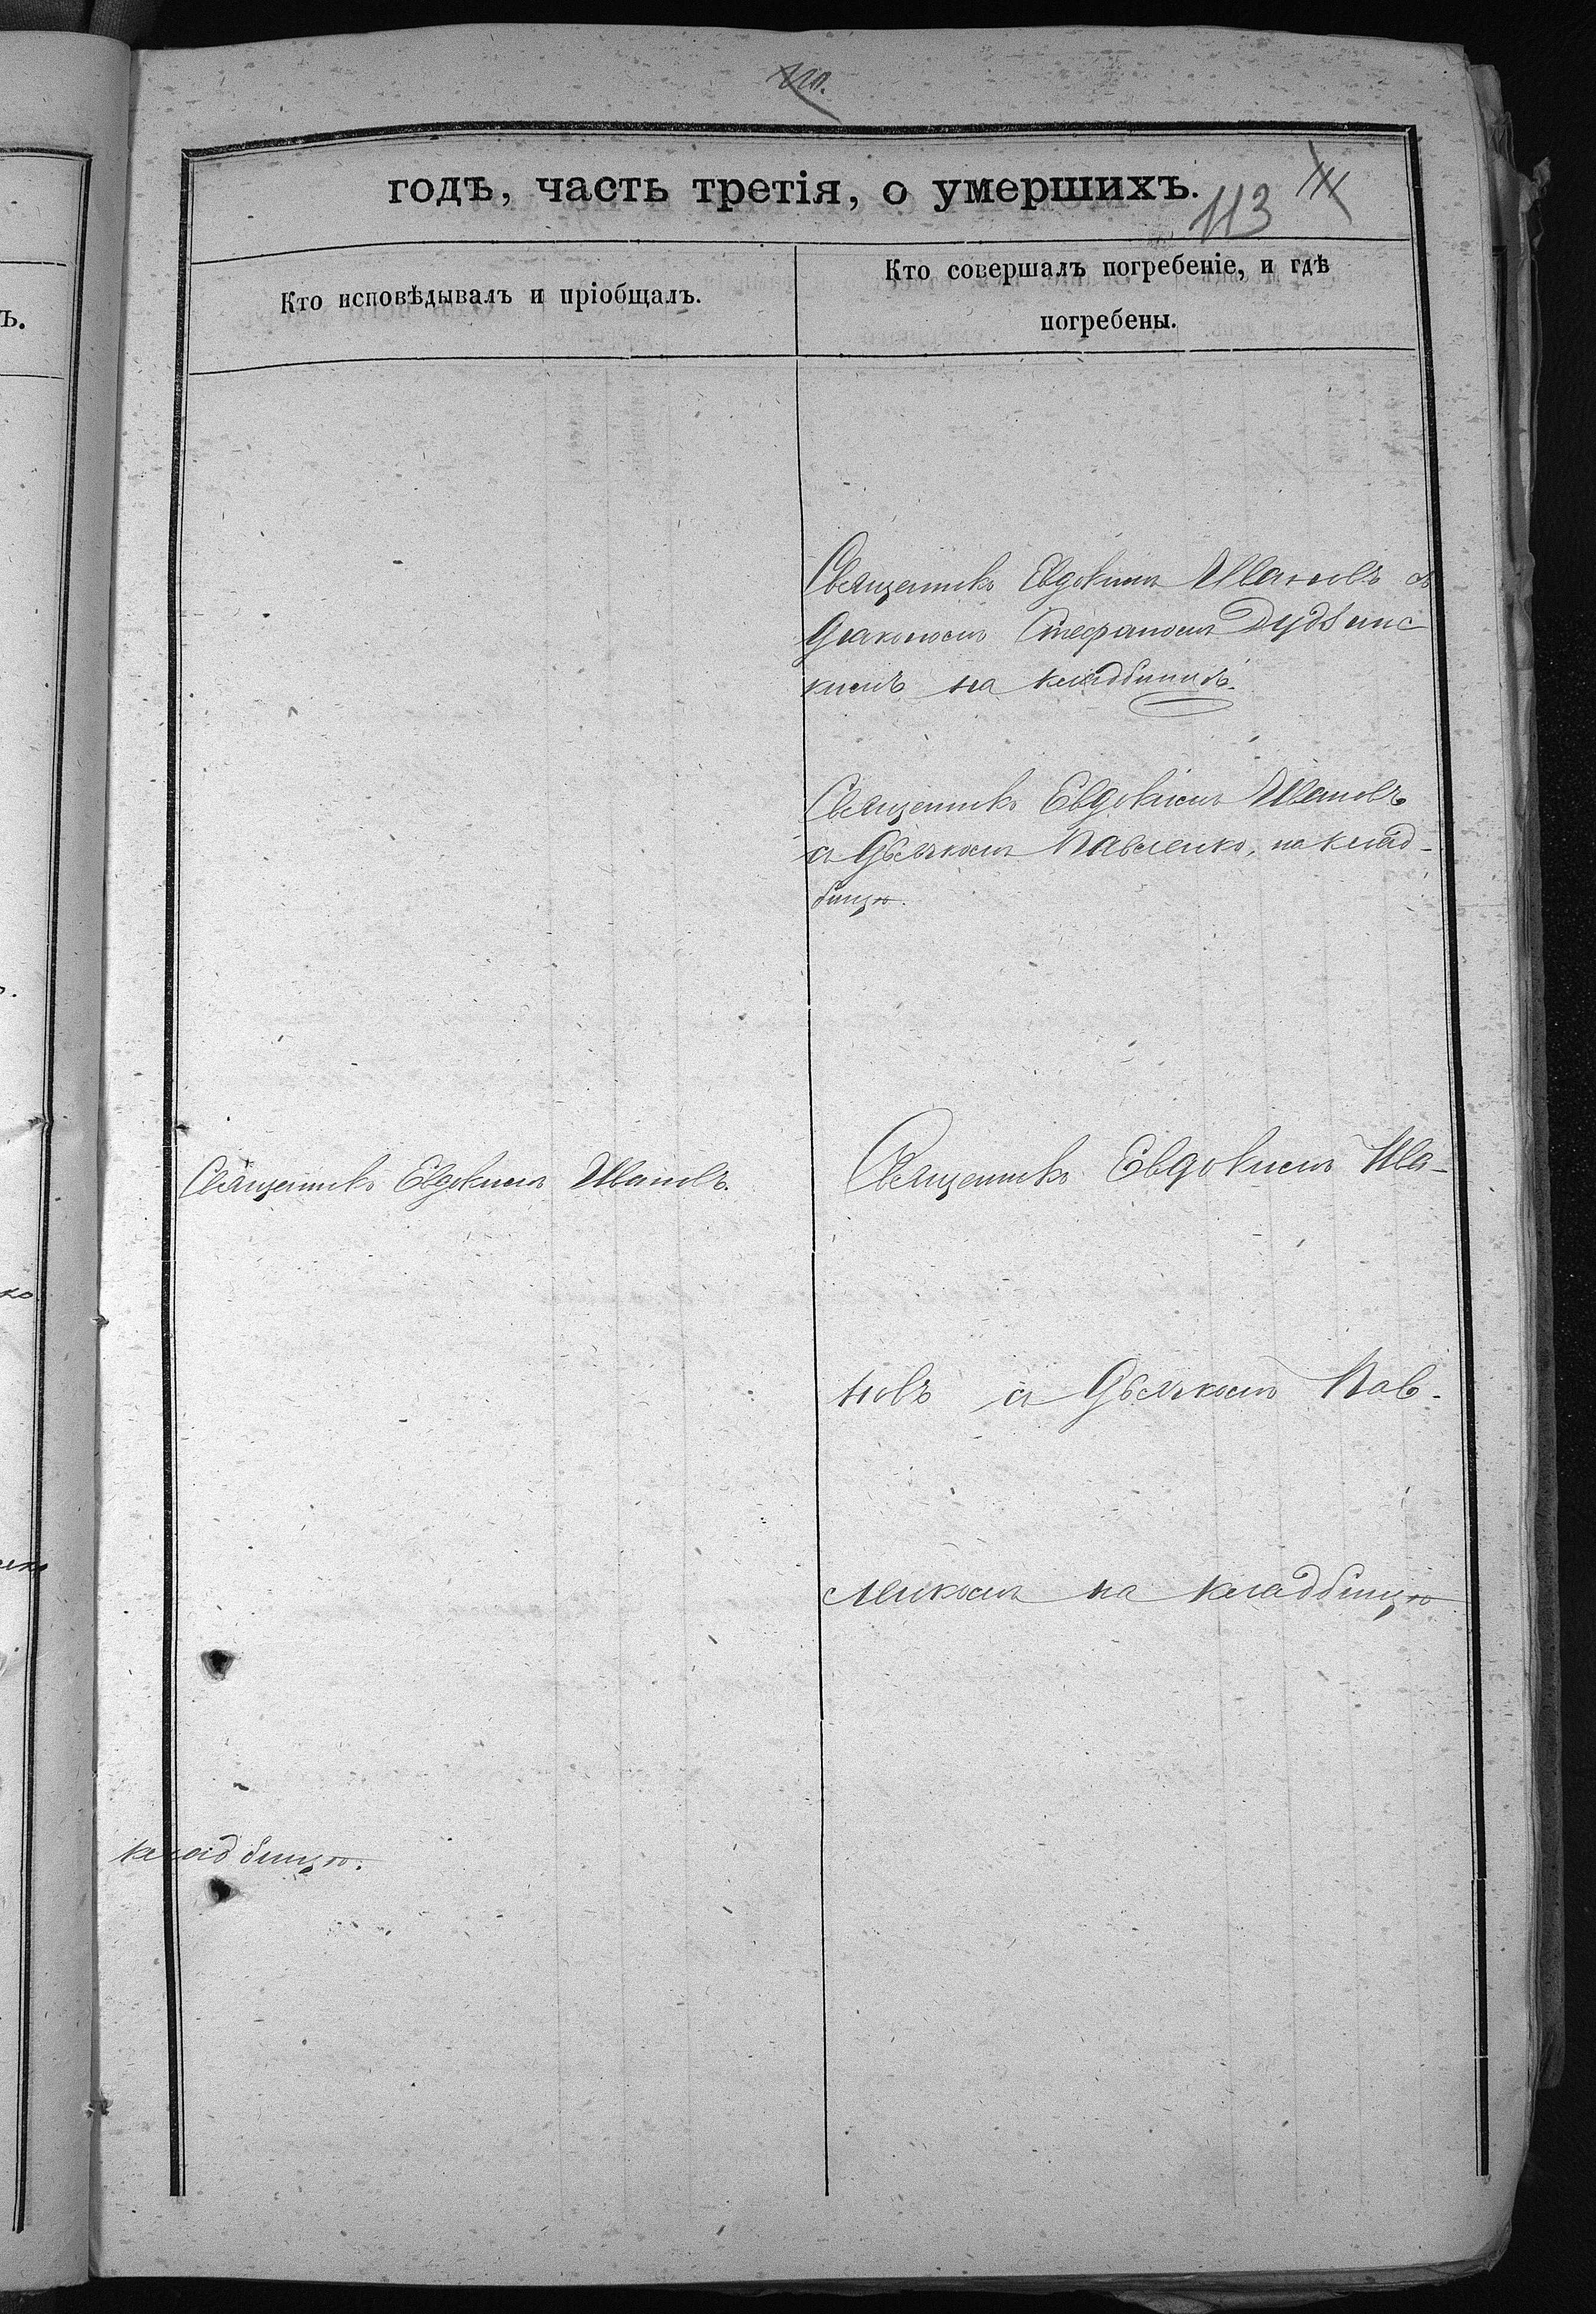 годъ, часть третія, о умершихъ.
113
Кто исповѣдывалъ и пріобщалъ.
Кто совершалъ погребеніе, и гдѣ
погребены.
Священникъ Евдокимъ Ивановъ съ
Діакономъ Стефаномъ Дудзинс
кимъ на кладбищѣ.
Священникъ Евдокимъ Ивановъ
съ Дьячкомъ Павленко, на клад-
бищѣ.
Священникъ Евдокимъ Ивановъ.
Священникъ Евдокимъ Ива-
новъ съ Дьячкомъ Пав-
ленкомъ на кладбищѣ
кладбищѣ.